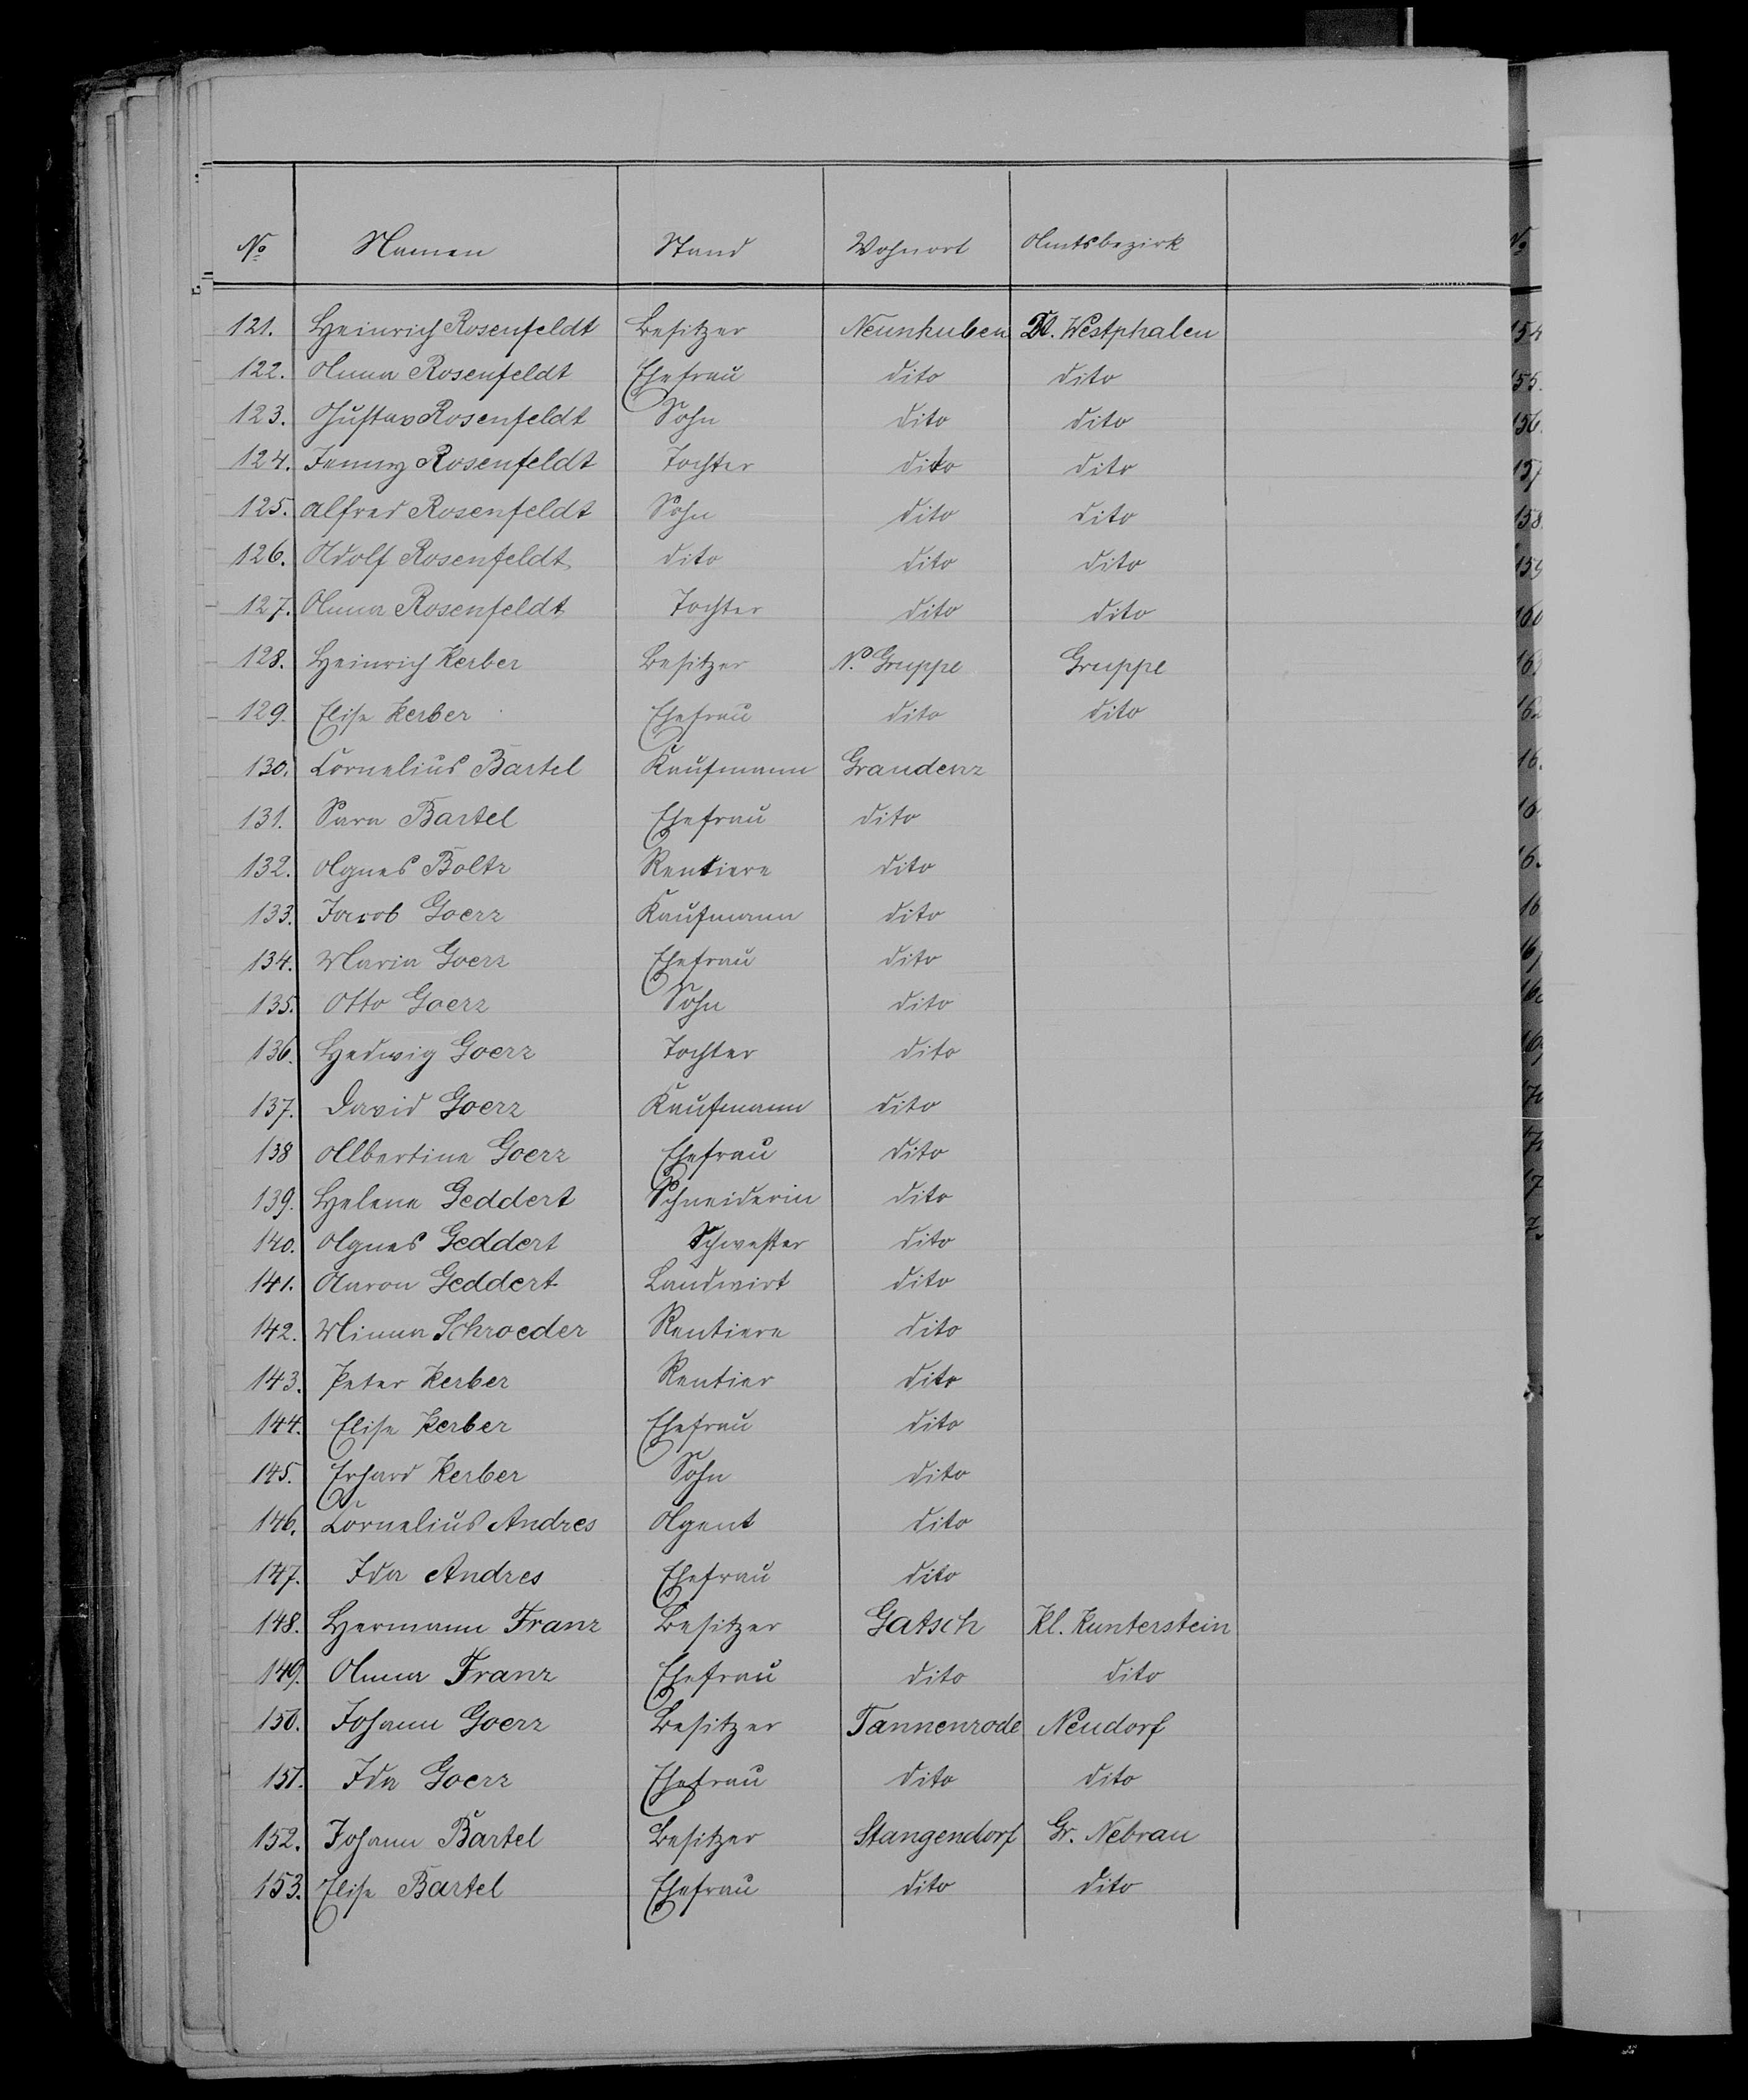 No Namen Stand Wohnort Amtsbezirk
121. Heinrich Rosenfeldt Besitzer Neunhuben Dt. Westphalen
122. Anna Rosenfeldt Ehefrau dito dito
123. Gustav Rosenfeldt Sohn dito dito
124. Jenny Rosenfeldt Tochter dito dito
125. Alfred Rosenfeldt Sohn dito dito
126. Adolf Rosenfeldt dito dito dito
127. Anna Rosenfeldt Tochter dito dito
128. Heinrich Kerber Besitzer N. Gruppe Gruppe
129. Elise Kerber Ehefrau dito dito
130. Cornelius Bartel Kaufmann Graudenz
131. Sara Bartel Ehefrau dito
132. Agnes Boltz Rentiere dito
133. Jacob Goerz Kaufmann dito
134. Maria Goerz Ehefrau dito
135. Otto Goerz Sohn dito
136. Hedwig Goerz Tochter dito
137. David Goerz Kaufmann dito
138 Albertine Goerz Ehefrau dito
139. Helene Geddert Schneiderin dito
140. Agnes Geddert Schwester dito
141. Aaron Geddert Landwirt dito
142. Minna Schroeder Rentiere dito
143. Peter Kerber Rentier dito
144. Elise Kerber Ehefrau dito
145. Erhard Kerber Sohn dito
146. Cornelius Andres Agent dito
147. Ida Andres Ehefrau dito
148. Hermann Franz Besitzer Gatsch Kl. Kunterstein
149. Anna Franz Ehefrau dito dito
150. Johann Goerz Besitzer Tannenrode Neudorf
151. Ida Goerz Ehefrau dito dito
152. Johann Bartel Besitzer Stangendorf Gr. Nebrau
153. Elise Bartel Ehefrau dito dito